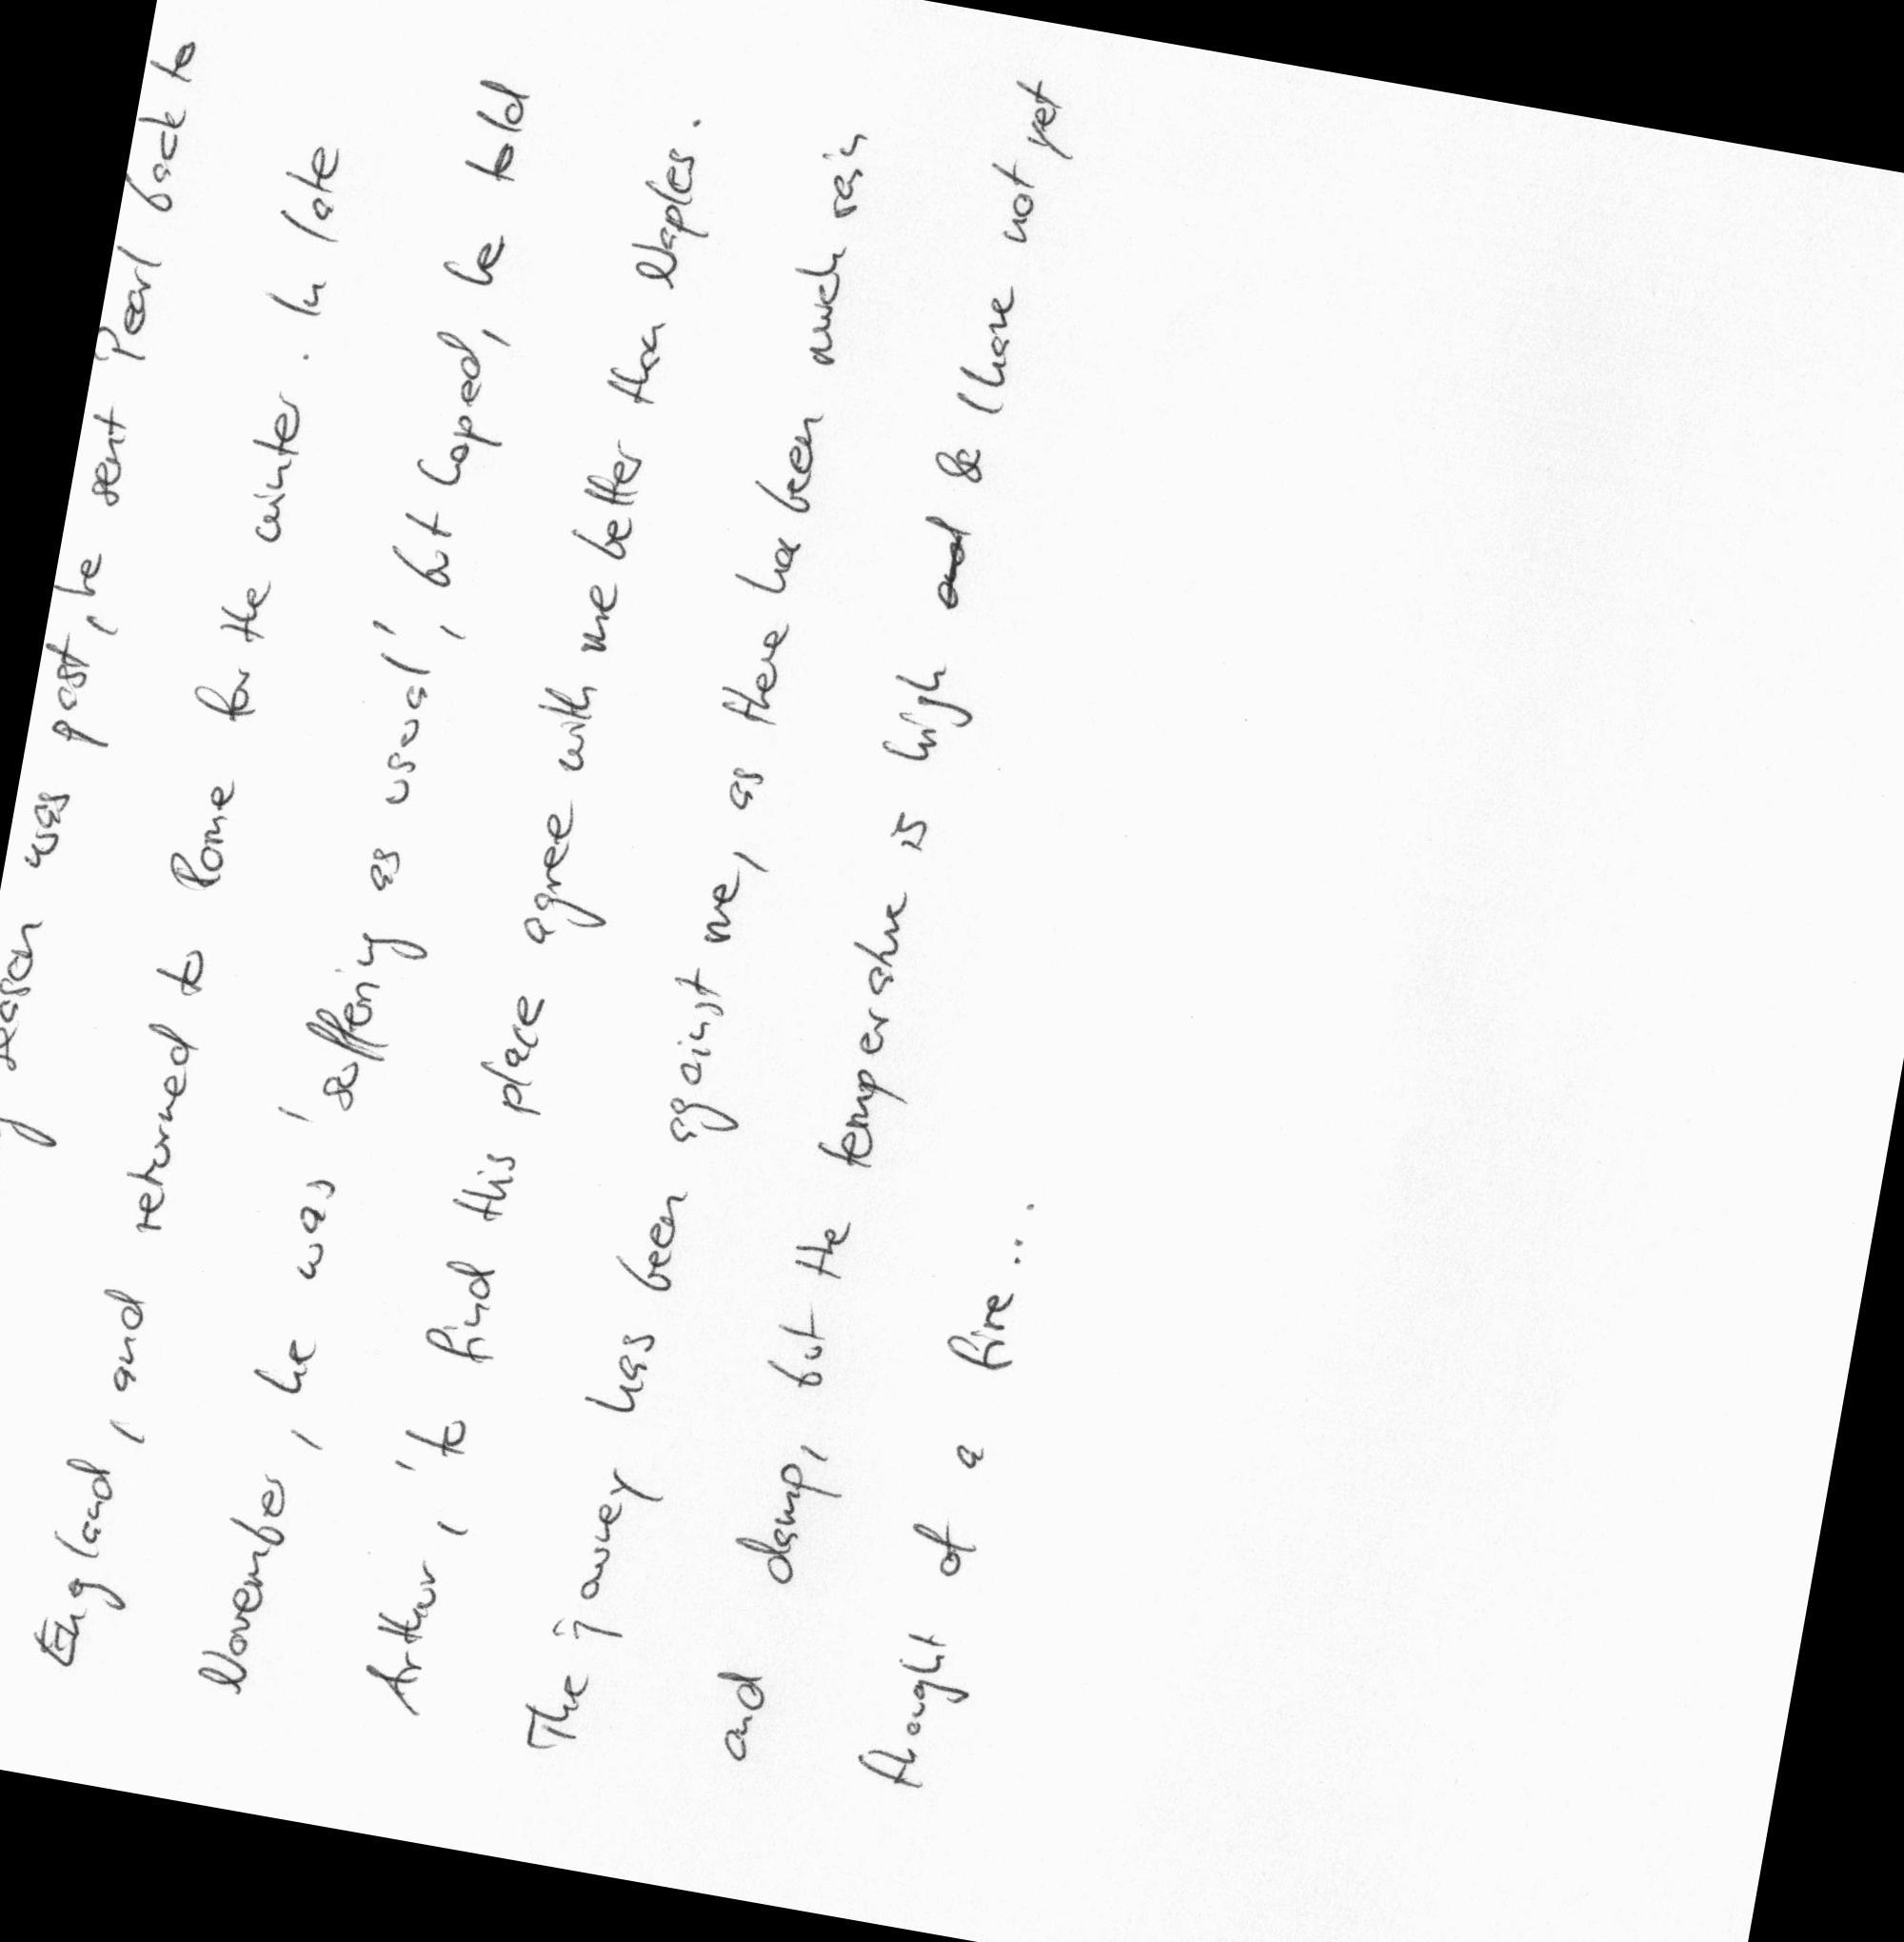 season was past, he sent Pearl back to
England, and returned to Rome for the winter. In late
November, he was 'suffering as usual', but hoped, he told
Arthur, 'to find this place agree with me better than Naples.
The jouney has been against me, as there has been much rain
and damp, but the temperature is high & I have not yet
thought of a fire...